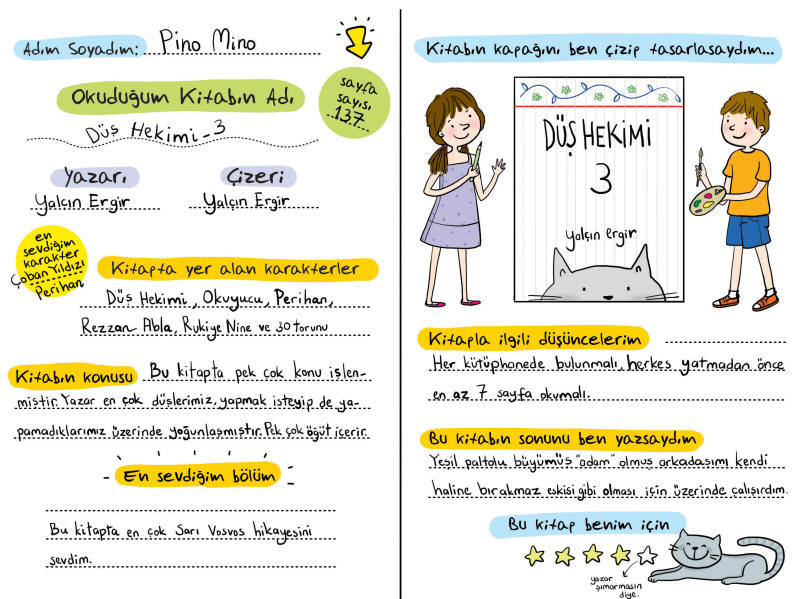 Adım Soyadım: Pino Mino
Okuduğum Kitabın Adı
sayfa
sayısı
137
Düş Hekimi-3
Yazarı
Yalçın Ergir
Çizeri
Yalçın Ergir
en
sevdiğim
karakter
Çoban Yıldızı
Perihan
Kitapta yer alan karakterler
Düş Hekimi, Okuyucu, Perihan,
Rezzan Abla, Rukiye Nine ve 30 torunu
Kitabın konusu Bu kitapta pek çok konu işlen-
miştir. Yazar en çok düşlerimiz, yapmak isteyip de ya-
pamadıklarımız üzerinde yoğunlaşmıştır. Pek çok öğüt içerir.
En sevdiğim bölüm
Bu kitapta en çok Sarı Vosvos hikayesini
sevdim.
Kitabın kapağını ben çizip tasarlasaydım...
DÜŞ HEKİMİ
3
yalçın ergir
Kitapla ilgili düşüncelerim
Her kütüphanede bulunmalı, herkes yatmadan önce
en az 7 sayfa okumalı.
Bu kitabın sonunu ben yazsaydım
Yeşil paltolu büyümüş "adam" olmuş arkadaşımı kendi
haline bırakmaz eskisi gibi olması için üzerinde çalışırdım.
Bu kitap benim için
yazar
şımarmasın
diye.